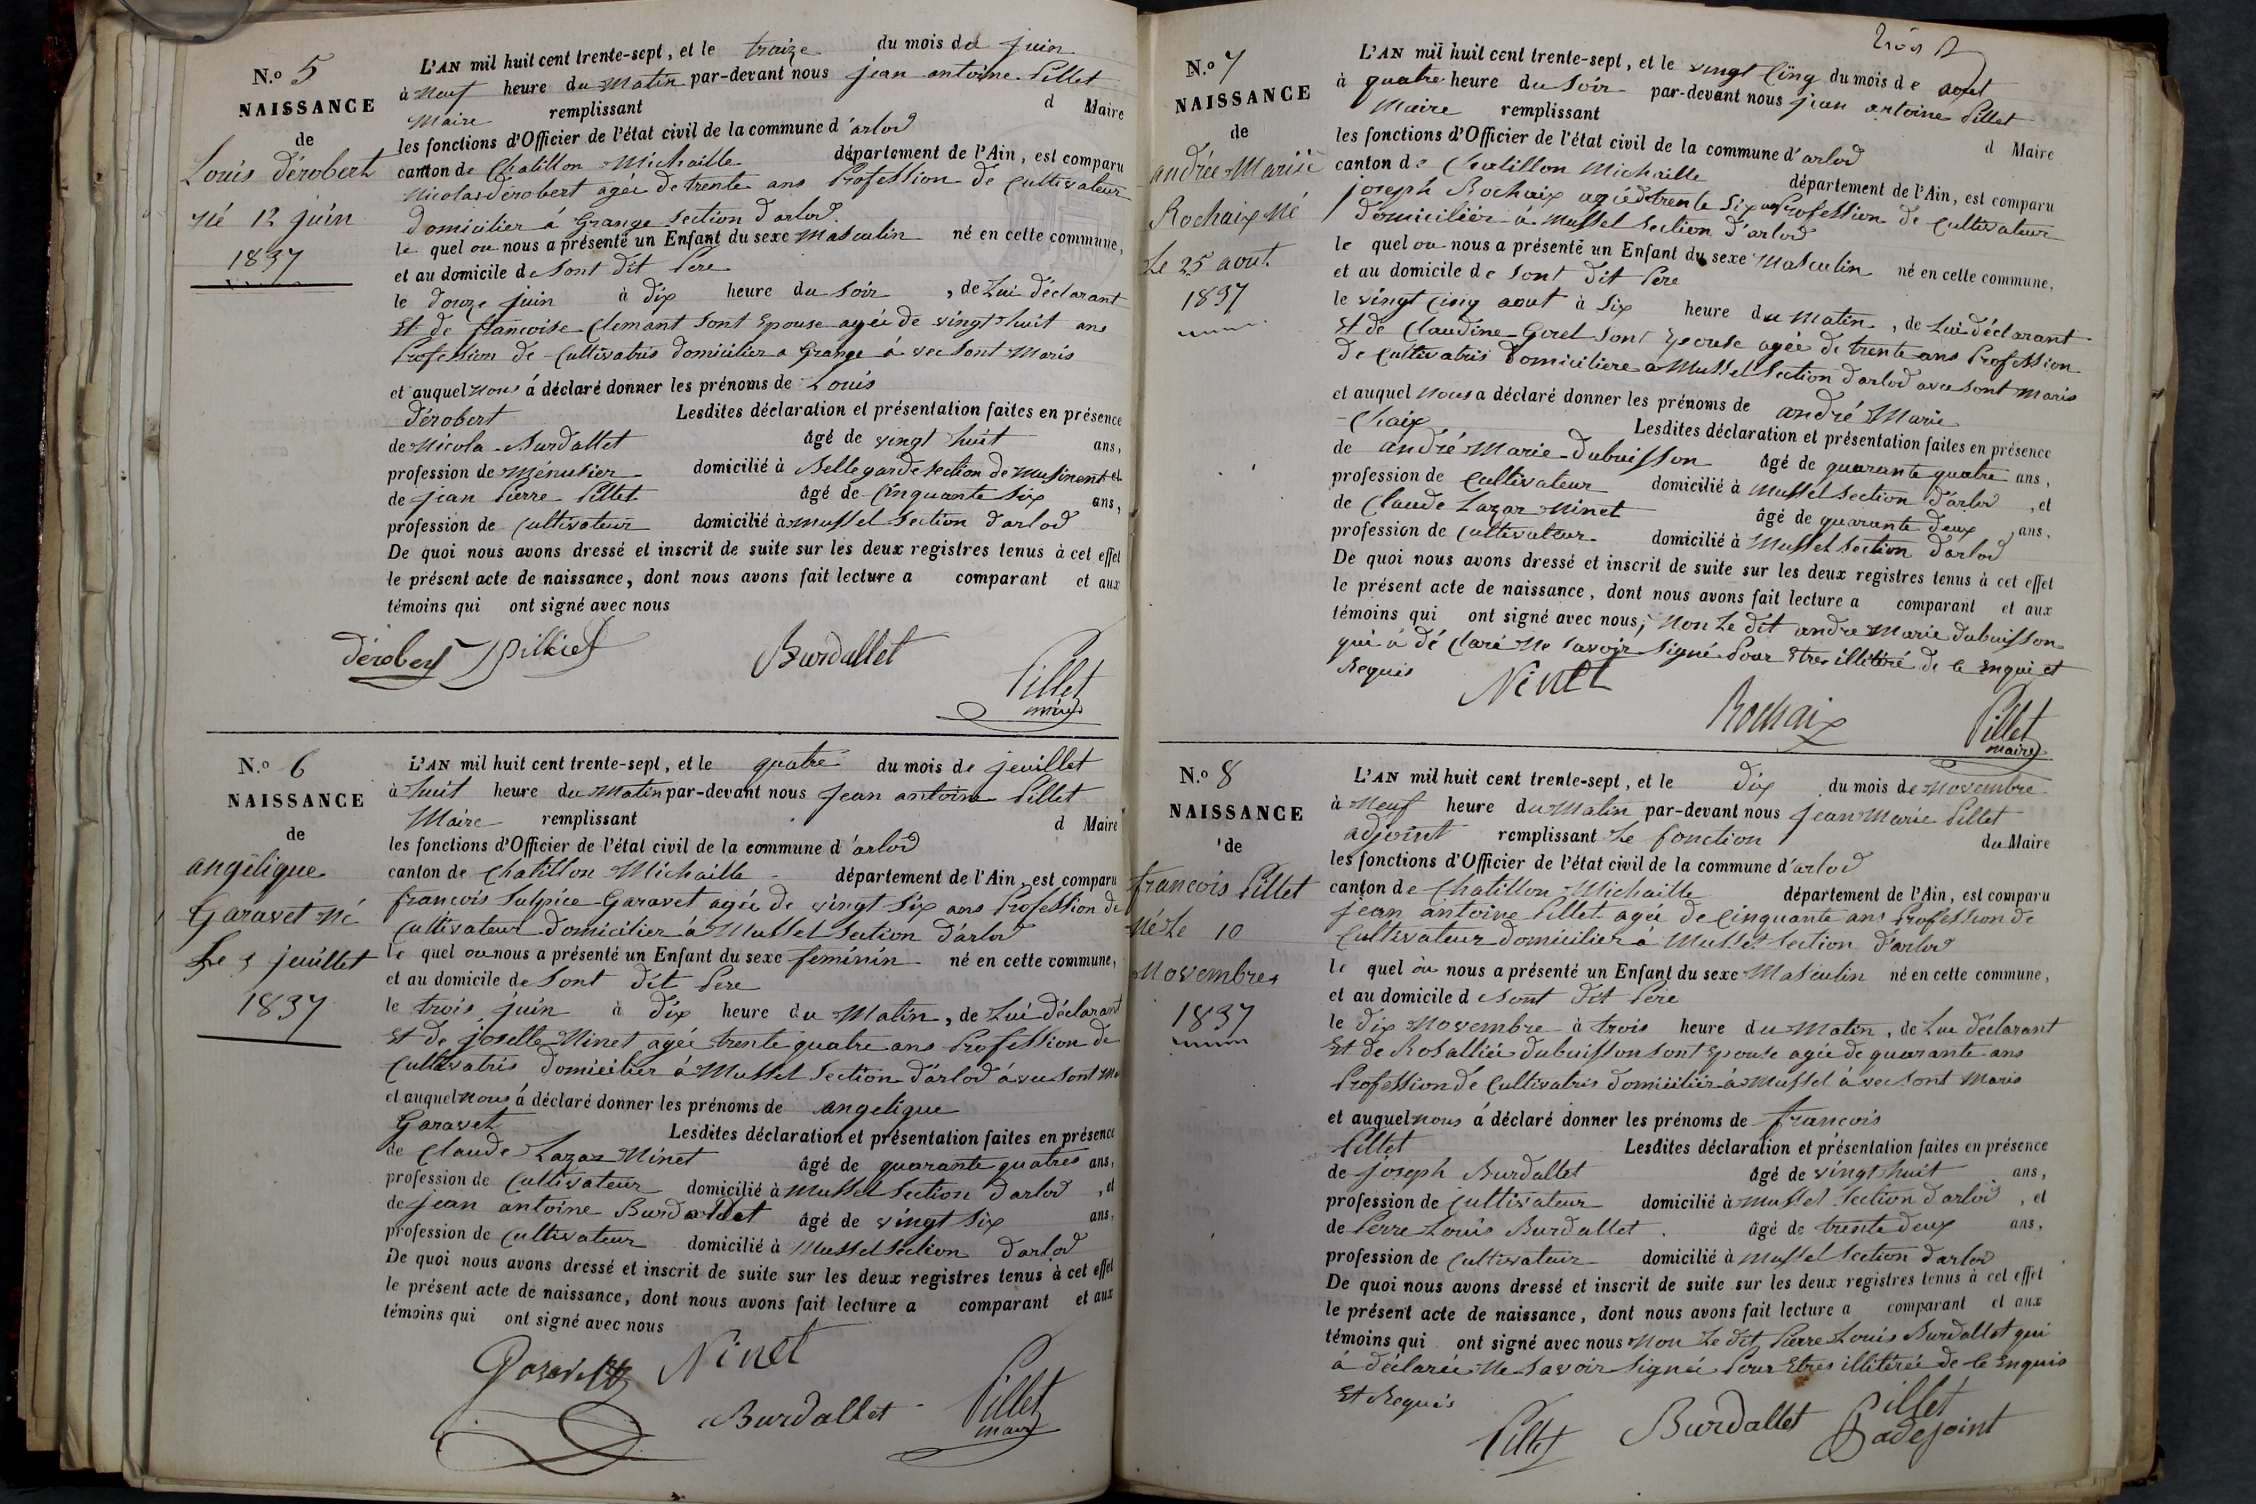 N.o 5
NAISSANCE
de
Louis dérobert
né 12 juin
1837
L'AN mil huit cent trente-sept, et le traize du mois de juin
à neuf heure du Matin par-devant nous jean antoine Pillet
Maire remplissant d Maire
les fonctions d'Officier de l'état civil de la commune d'arlod
canton de Chatillon Michaille département de l'Ain, est comparu
Nicolas dérobert agée de trente ans Profession de Cultivateur
domicilier à Grange Section d'arlod.
le quel ou nous a présenté un Enfant du sexe Masculin né en cette commune,
et au domicile de Sont dit Pere
le douze juin à dix heure du Soir, de Lui déclarant
Et de françoise Clemant Sont Epouse agée de vingt huit ans
Profession de Cultivatris domicilier a Grange à vec Sont Maris
et auquel nous à déclaré donner les prénoms de Louis
dérobert Lesdites déclaration et présentation faites en présence
de Nicola Burdallet âgé de vingt huit ans,
profession de Ménusier domicilié à Bellegarde section de Musinent et
de jean Pierre Pillet âgé de Cinquante Six ans,
profession de Cultivateur domicilié à Mussel Section d'arlod
De quoi nous avons dressé et inscrit de suite sur les deux registres tenus à cet effet
le présent acte de naissance, dont nous avons fait lecture a comparant et aux
témoins qui ont signé avec nous
Burdallet
Pillet
maire
N.o 6
NAISSANCE
de
angélique
Garavet Né
Le 3 jeuillet
1837
L'AN mil huit cent trente-sept, et le quatre du mois de jeuillet
à huit heure du Matin par-devant nous jean antoine Pillet
Maire remplissant d Maire
les fonctions d'Officier de l'état civil de la commune d'arlod
canton de Chatillon Michaille département de l'Ain, est comparu
francois Sulpice Garavet agée de vingt Six ans Profession de
Cultivateur Domicilier à Mussel Section d'arlod
le quel ou nous a présenté un Enfant du sexe feminin né en cette commune,
et au domicile de Sont dit Pere
le trois juin à dix heure du Matin, de Lui déclarant
Et de joselle Ninet agée trente quatre ans Profession de
Cultivatris Domicilier à Mussel Section d'arlod à vec Sont Ma
et auquel nous à déclaré donner les prénoms de angelique
Garavet Lesdites déclaration et présentation faites en présence
de Claude Lazar Ninet âgé de quarante quatres ans,
profession de Cultivateur domicilié à Mussel Section d'arlod, et
de jean antoine Burdallet âgé de vingt Six ans,
profession de Cultivateur domicilié à Mussel Section d'arlod
De quoi nous avons dressé et inscrit de suite sur les deux registres tenus à cet effet
le présent acte de naissance, dont nous avons fait lecture a comparant et aux
témoins qui ont signé avec nous
Ninet
Burdallet
Pillet
maire
N.o 7
NAISSANCE
de
andrée Marie
Rochaix Né
Le 25 aout
1837
L'AN mil huit cent trente-sept, et le vingt Cinq du mois de aout
à quatre heure du Soir par-devant nous jean antoine Pillet
Maire remplissant d Maire
les fonctions d'Officier de l'état civil de la commune d'arlod
canton de Chatillon Michaille département de l'Ain, est comparu
joseph Rochaix agée de trente Six ans Profession de Cultivateur
domicilier à Mussel Section d'arlod
le quel ou nous a présenté un Enfant du sexe Masculin né en cette commune,
et au domicile de Sont dit Pere
le vingt Cinq aout à Six heure du Matin, de Lui déclarant
Et de Claudine Goret Sont Epouse agée de trente ans Profession
de Cultivatris Domiciliere a Mussel Section d'arlod avec Sont Maris
et auquel nous a déclaré donner les prénoms de andré Marie
Chaix Lesdites déclaration et présentation faites en présence
de andré Marie dubuisson âgé de quarante quatre ans,
profession de Cultivateur domicilié à Mussel Section d'arlod, et
de Claude Lazar Ninet âgé de quarante deux ans,
profession de Cultivateur domicilié à Mussel Section d'arlod
De quoi nous avons dressé et inscrit de suite sur les deux registres tenus à cet effet
le présent acte de naissance, dont nous avons fait lecture a comparant et aux
témoins qui ont signé avec nous, Non Le dit andre Marie dubuisson
qui à dé claré Ne Savoir Signé Pour Etres illétéré de ce Enqui et
Requis
Ninet
Rochaix
Pillet
maire
N.o 8
NAISSANCE
de
francois Pillet
Né Le 10
Novembres
1837
L'AN mil huit cent trente-sept, et le dix du mois de Novembre
à Neuf heure du Matin par-devant nous jean Marie Pillet
adjoint remplissant Le fonction du Maire
les fonctions d'Officier de l'état civil de la commune d'arlod
canton de Chatillon Michaille département de l'Ain, est comparu
jean antoine Pillet agée de Cinquante ans Profession de
Cultivateur domicilier à Mussel Section d'arlod
le quel ou nous a présenté un Enfant du sexe Masculin né en cette commune,
et au domicile d Sont dit Père
le dix Novembre à trois heure du Matin, de Lui déclarant
Et de Rosallie dubuisson Sont Epouse agée de quarante ans
Profession de Cultivatris domicilier à Mussel à vec Sont Maris
et auquel nous à déclaré donner les prénoms de francois
Pillet Lesdites déclaration et présentation faites en présence
de joseph Burdallet âgé de vingt huit ans,
profession de Cultivateur domicilié à Mussel Section d'arlod, et
de Perre Louis Burdallet. âgé de trente deux ans,
profession de Cultivateur domicilié à Mussel Section d'arlod
De quoi nous avons dressé et inscrit de suite sur les deux registres tenus à cet effet
le présent acte de naissance, dont nous avons fait lecture a comparant et aux
témoins qui ont signé avec nous Non Le dit Pierre Louis Burdallet qui
à déclarée Ne Savoir Signée Pour Etres illitérée de ce Enquis
Et Requis
Pillet
Burdallet
Pillet
adejoint